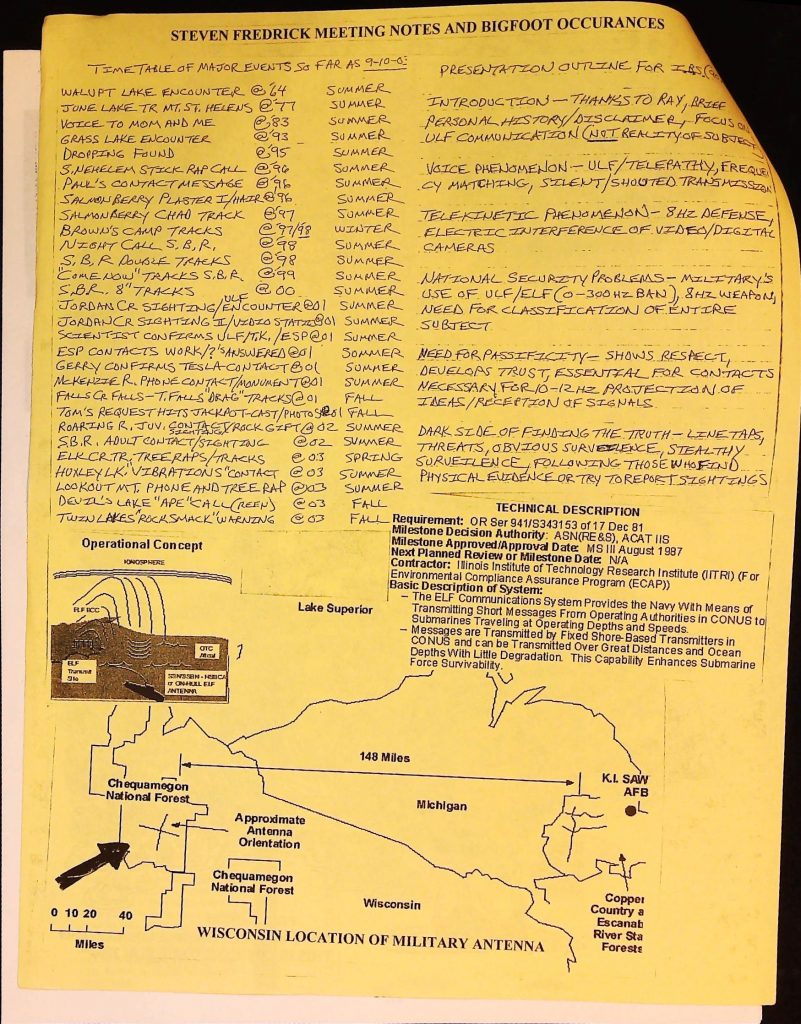 STEVEN FREDRICK MEETING NOTES AND BIGFOOT OCCURANCES
TIMETABLE OF MAJOR EVENTS SO FAR AS 9-10-03
WALUPT LAKE ENCOUNTER @'64 SUMMER
JUNE LAKE TR. MT. ST. HELENS @'77 SUMMER
VOICE TO MOM AND ME @'83 SUMMER
GRASS LAKE ENCOUNTER @'93 SUMMER
DROPPING FOUND @'95 SUMMER
S. NEHELEM STICK RAP CALL @'96 SUMMER
PAUL'S CONTACT MESSAGE @'96 SUMMER
SALMONBERRY PLASTER I/HAIR @96 SUMMER
SALMONBERRY CHAD TRACK @'97 SUMMER
BROWN'S CAMP TRACKS @'97/98 WINTER
NIGHT CALL S.B.R. @'98 SUMMER
S.B.R DOUBLE TRACKS @'98 SUMMER
"COME NOW" TRACKS S.B.R. @'99 SUMMER
S.B.R. 8" TRACKS @.00 SUMMER
JORDAN CR SIGHTING/ULF ENCOUNTER @01 SUMMER
JORDAN CR SIGHTING II/VIDIO STATIC @01 SUMMER
SCIENTIST CONFIRMS ULF/T.K./ESP @01 SUMMER
ESP CONTACTS WORK/?'S ANSWERED @01 SUMMER
GERRY CONFIRMS TESLA CONTACT @01 SUMMER
MCKENZIE R. PHONE CONTACT/MONUMENT @01 SUMMER
FALLS CR FALLS - T. FALLS "DRAG" TRACKS @01 FALL
TOM'S REQUEST HITS JACKPOT-CAST/PHOTOS @01 FALL
ROARING R. JUV. CONTACT/SIGHTING/ROCK GIFT @ 02 SUMMER
S.B.R. ADULT CONTACT/SIGHTING @ 02 SUMMER
ELK CR. TR. TREE RAPS/TRACKS @ 03 SPRING
HUXLEY LK. "VIBRATIONS" CONTACT @ 03 SUMMER
LOOKOUT MT. PHONE AND TREE RAP @03 SUMMER
DEVIL'S LAKE "APE" CALL (REEN) @ 03 FALL
TWIN LAKES "ROCK SMACK" WARNING @ 03 FALL
PRESENTATION OUTLINE FOR I.B.S.
INTRODUCTION - THANKS TO RAY, BRIEF
PERSONAL HISTORY/DISCLAIMER, FOCUS ON
ULF COMMUNICATION (NOT REALITY OF SUBJECT
VOICE PHENOMENON - ULF/TELEPATHY, FREQUEN
CY MATCHING, SILENT/SHOUTED TRANSMISSION
TELEKINETIC PHENOMENON - 8HZ DEFENSE,
ELECTRIC INTERFERENCE OF VIDEO/DIGITAL
CAMERAS
NATIONAL SECURITY PROBLEMS - MILITARY'S
USE OF ULF/ELF (0-300HZ BAN), 8HZ WEAPON,
NEED FOR CLASSIFICATION OF ENTIRE
SUBJECT
NEED FOR PASSIFICITY - SHOWS RESPECT,
DEVELOPS TRUST, ESSENTIAL FOR CONTACTS
NECESSARY FOR 10-12HZ PROJECTION OF
IDEAS/RECEPTION OF SIGNALS
DARK SIDE OF FINDING THE TRUTH - LINE TAPS,
THREATS, OBVIOUS SURVEILENCE, STEALTHY
SURVEILENCE, FOLLOWING THOSE WHO FIND
PHYSICAL EVIDENCE OR TRY TO REPORT SIGHTINGS
TECHNICAL DESCRIPTION
Requirement: OR Ser 941/S343153 of 17 Dec 81
Milestone Decision Authority: ASN(RE&S), ACAT IIS
Milestone Approved/Approval Date: MS III August 1987
Next Planned Review or Milestone Date: N/A
Contractor: Illinois Institute of Technology Research Institute (IITRI) (For
Environmental Compliance Assurance Program (ECAP))
Basic Description of System:
– The ELF Communications System Provides the Navy With Means of
Transmitting Short Messages From Operating Authorities in CONUS to
Submarines Traveling at Operating Depths and Speeds.
– Messages are Transmitted by Fixed Shore-Based Transmitters in
CONUS and can be Transmitted Over Great Distances and Ocean
Depths With Little Degradation. This Capability Enhances Submarine
Force Survivability.
Operational Concept
IONOSPHERE
ELF
Transmit
Site
ANTENNA
Lake Superior
148 Miles
K.I. SAW
AFB
Chequamegon
National Forest
Michigan
Approximate
Antenna
Orientation
Chequamegon
National Forest
Wisconsin
Copper
Country a
Escanab
River Sta
Forests
0 10 20 40
Miles
WISCONSIN LOCATION OF MILITARY ANTENNA